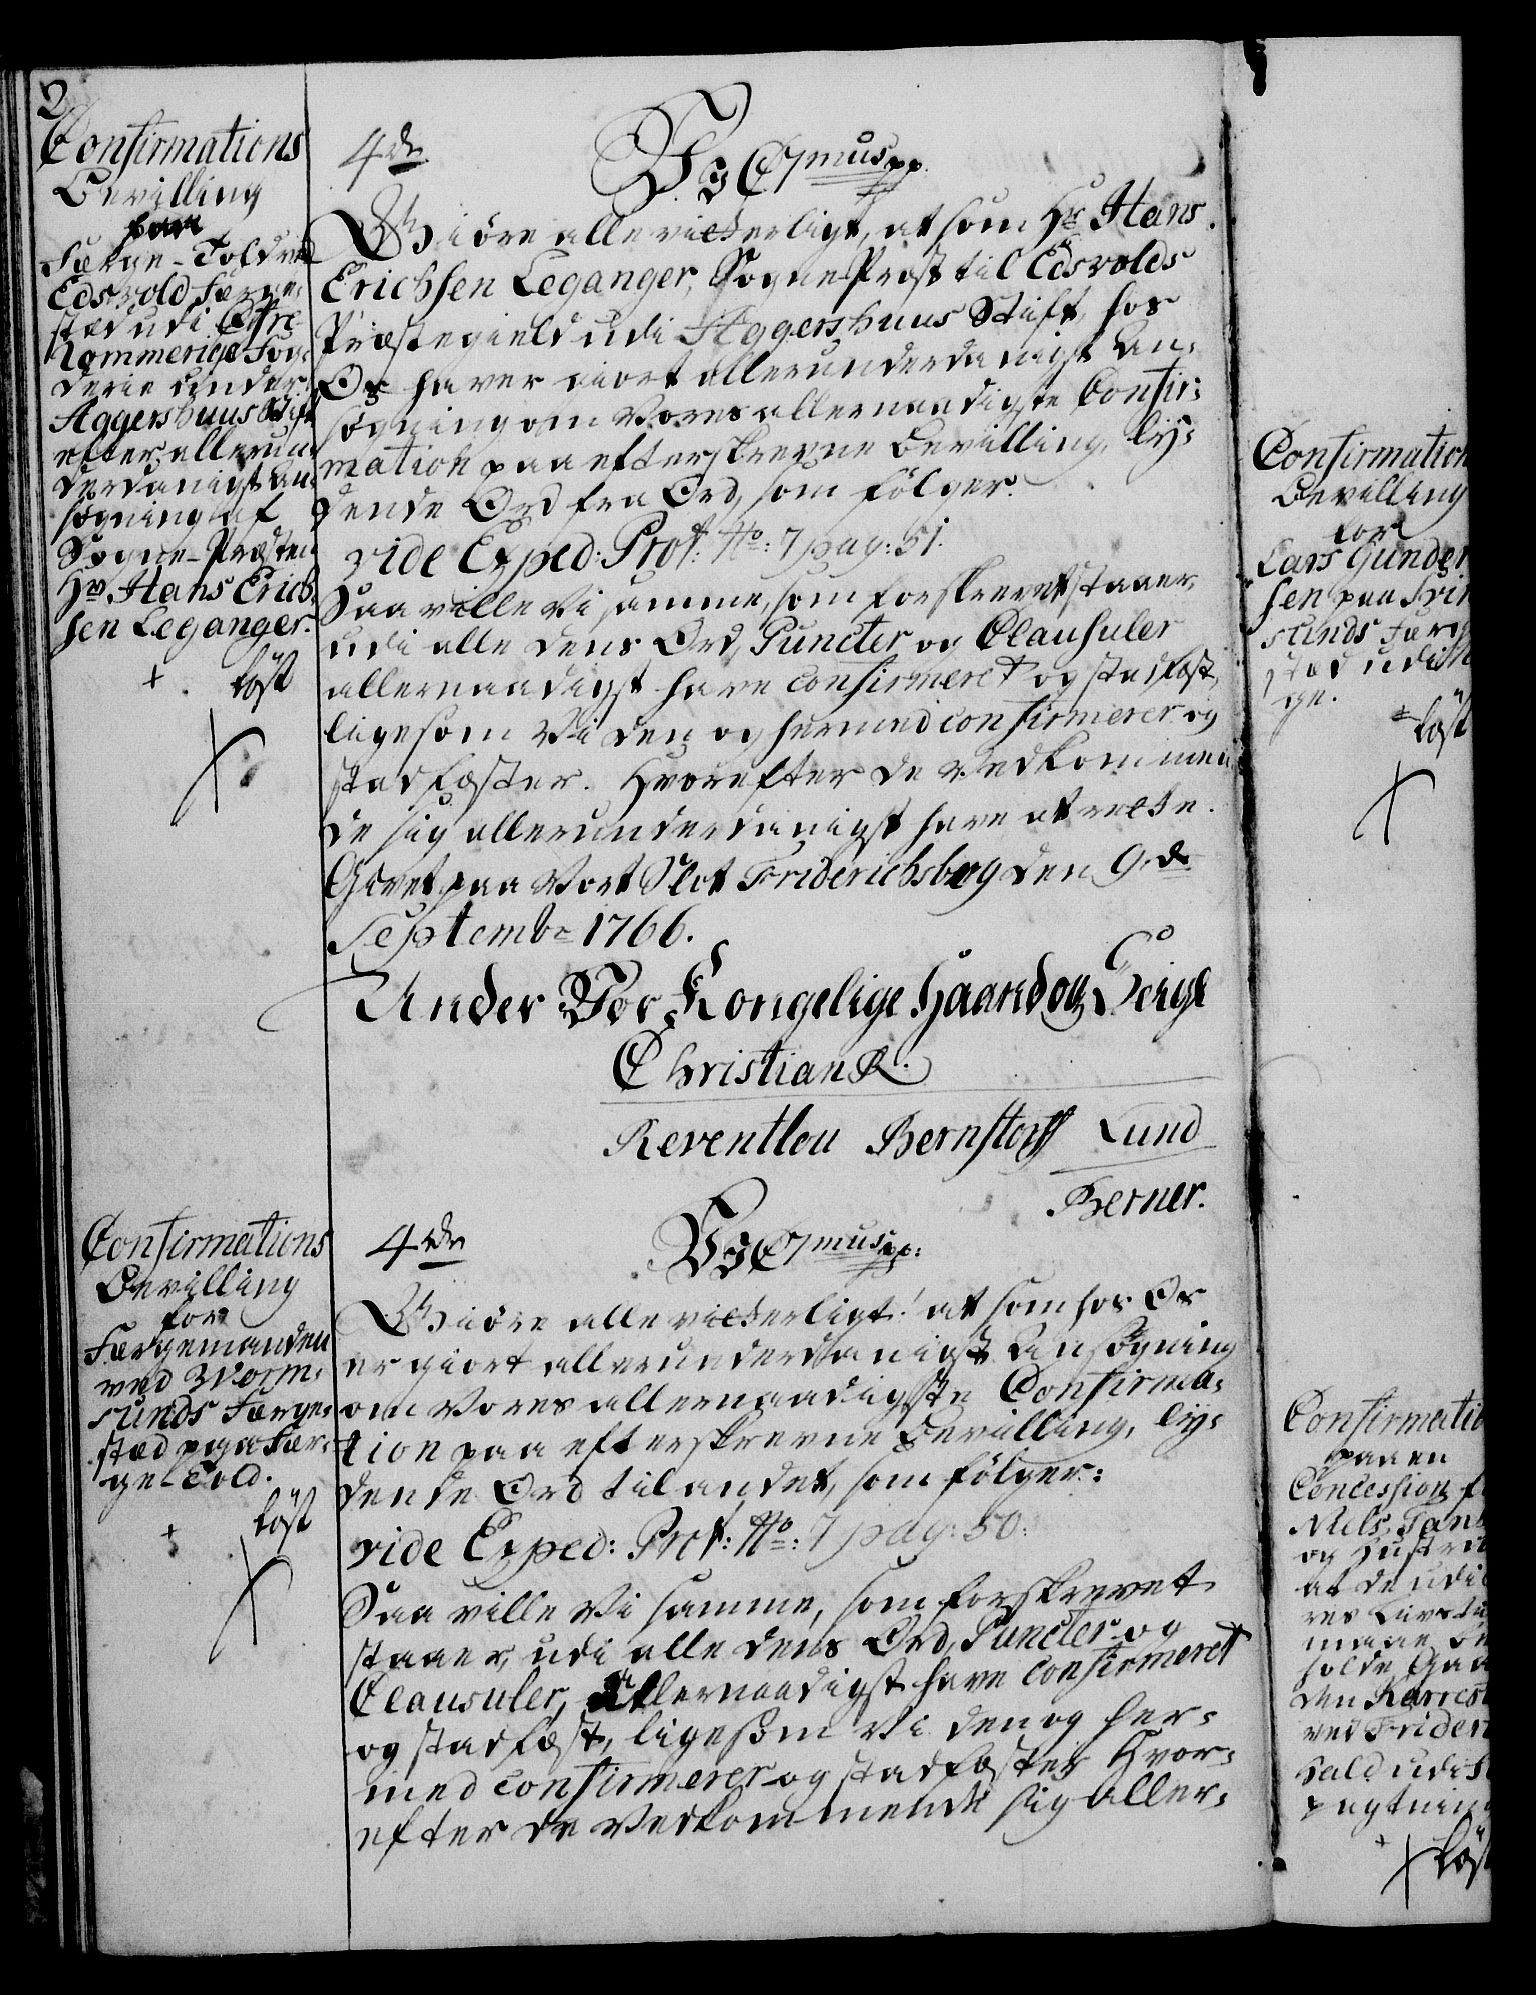 2
Confirmations
Bevilling
paa
Færge-Told ved
Edsvold Færge-
stæd udi Øfre
Rommerige Fog-
derie under
Aggershuus Stift
efter allerun-
derdanigst An-
søgning af
Sogne-Præsten
Hr. Hans Erich-
sen Leganger.
+ löst
4de
V. C. 7mus pp.
Giöre alle vitterligt, at som Hr. Hans
Erichsen Leganger, Sogne Præst til Edsvolds
Præstegield udi Aggershuus Stift, hos
Os haver giort allerunderdanigst An-
søgning om Vores allernaadigste Confir-
mation paa efterskrevne Bevilling, ly-
dende Ord fra Ord, som fölger.
vide Exped: Prot: No: 7 pag: 51.
Saa ville Vi samme, som forskrevet staaer
udi alle dens Ord, Puncter og Clausuler
allernaadigst have confirmeret og stadfæst,
ligesom Vi den og hermed confirmerer og
stadfæster. Hvorefter de Vedkommen-
de sig allerunderdanigst have at rette.
Givet paa Vort Slot Friderichsberg den 9de
Septembr 1766.
Under Vor Kongelige Haand og Seigl
Christian R.
Reventlou Bernstorff Lund
Berner.
Confirmations
Bevilling
for
Færgemanden
ved Worm-
sunds Færge-
stæd paa Fær-
ge-Told.
löst
+
4de
V. C. 7mus pp:
Giöre alle vitterligt: at som hos Os
er giort allerunderdanigst Ansøgning
om Vores allernaadigste Confirma-
tion paa efterskrevne Bevilling, ly-
dende Ord til andet, som fölger:
vide Exped: Prot: No: 7 pag: 50.
Saa ville Vi samme, som forskrevet
staaer, udi alle dens Ord, Puncter og
Clausuler, Allernaadigst have confirmeret
og stadfæst, ligesom Vi den og her-
med confirmerer og stadfæster Hvor-
efter de Vedkommende sig aller-
Confirmation
Bevilling
for
Lars Gunder
sen paa Svin
sunds Færge
stæd udi
ge.
löst
Confirmatio
paa en
Concession f
Niels Tan
og Hustru
at de udi
res Livs ti
maae be
holde Gaa
den Karrest
ved Frider
hald udi F
pagtning
+ löst